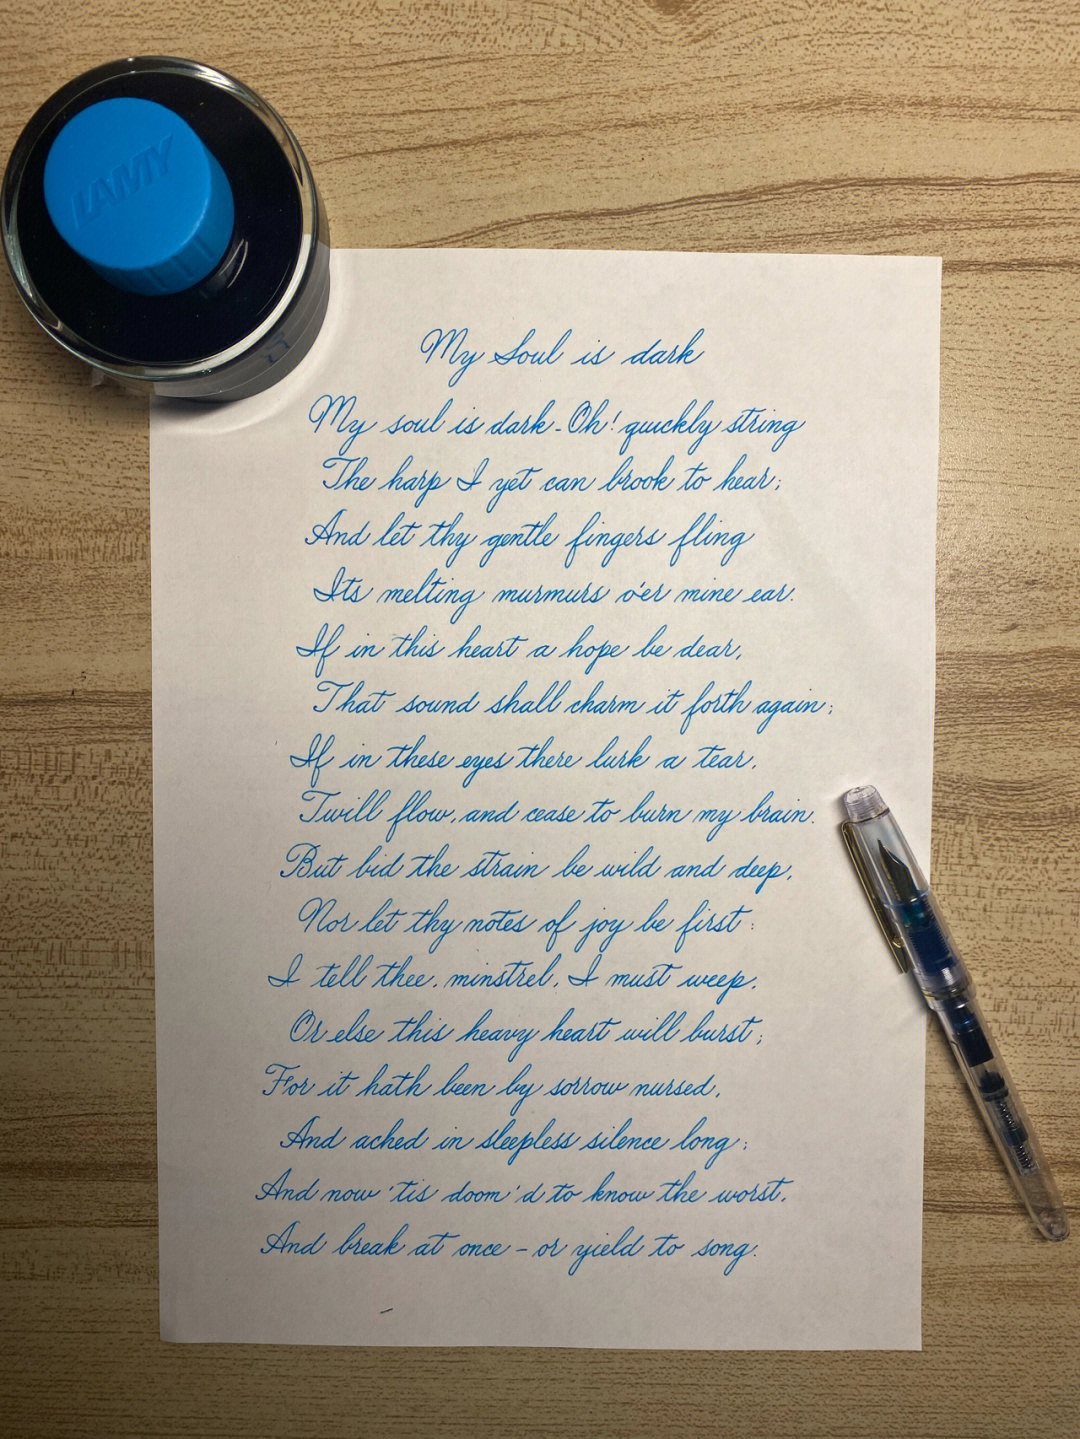 LAMY
My Soul is dark
My soul is dark - Oh! quickly string
The harp I yet can brook to hear;
And let thy gentle fingers fling
Its melting murmurs o'er mine ear.
If in this heart a hope be dear,
That sound shall charm it forth again;
If in these eyes there lurk a tear,
Twill flow, and cease to burn my brain.
But bid the strain be wild and deep,
Nor let thy notes of joy be first:
I tell thee, minstrel, I must weep,
Or else this heavy heart will burst;
For it hath been by sorrow nursed,
And ached in sleepless silence long;
And now 'tis doom'd to know the worst,
And break at once - or yield to song.